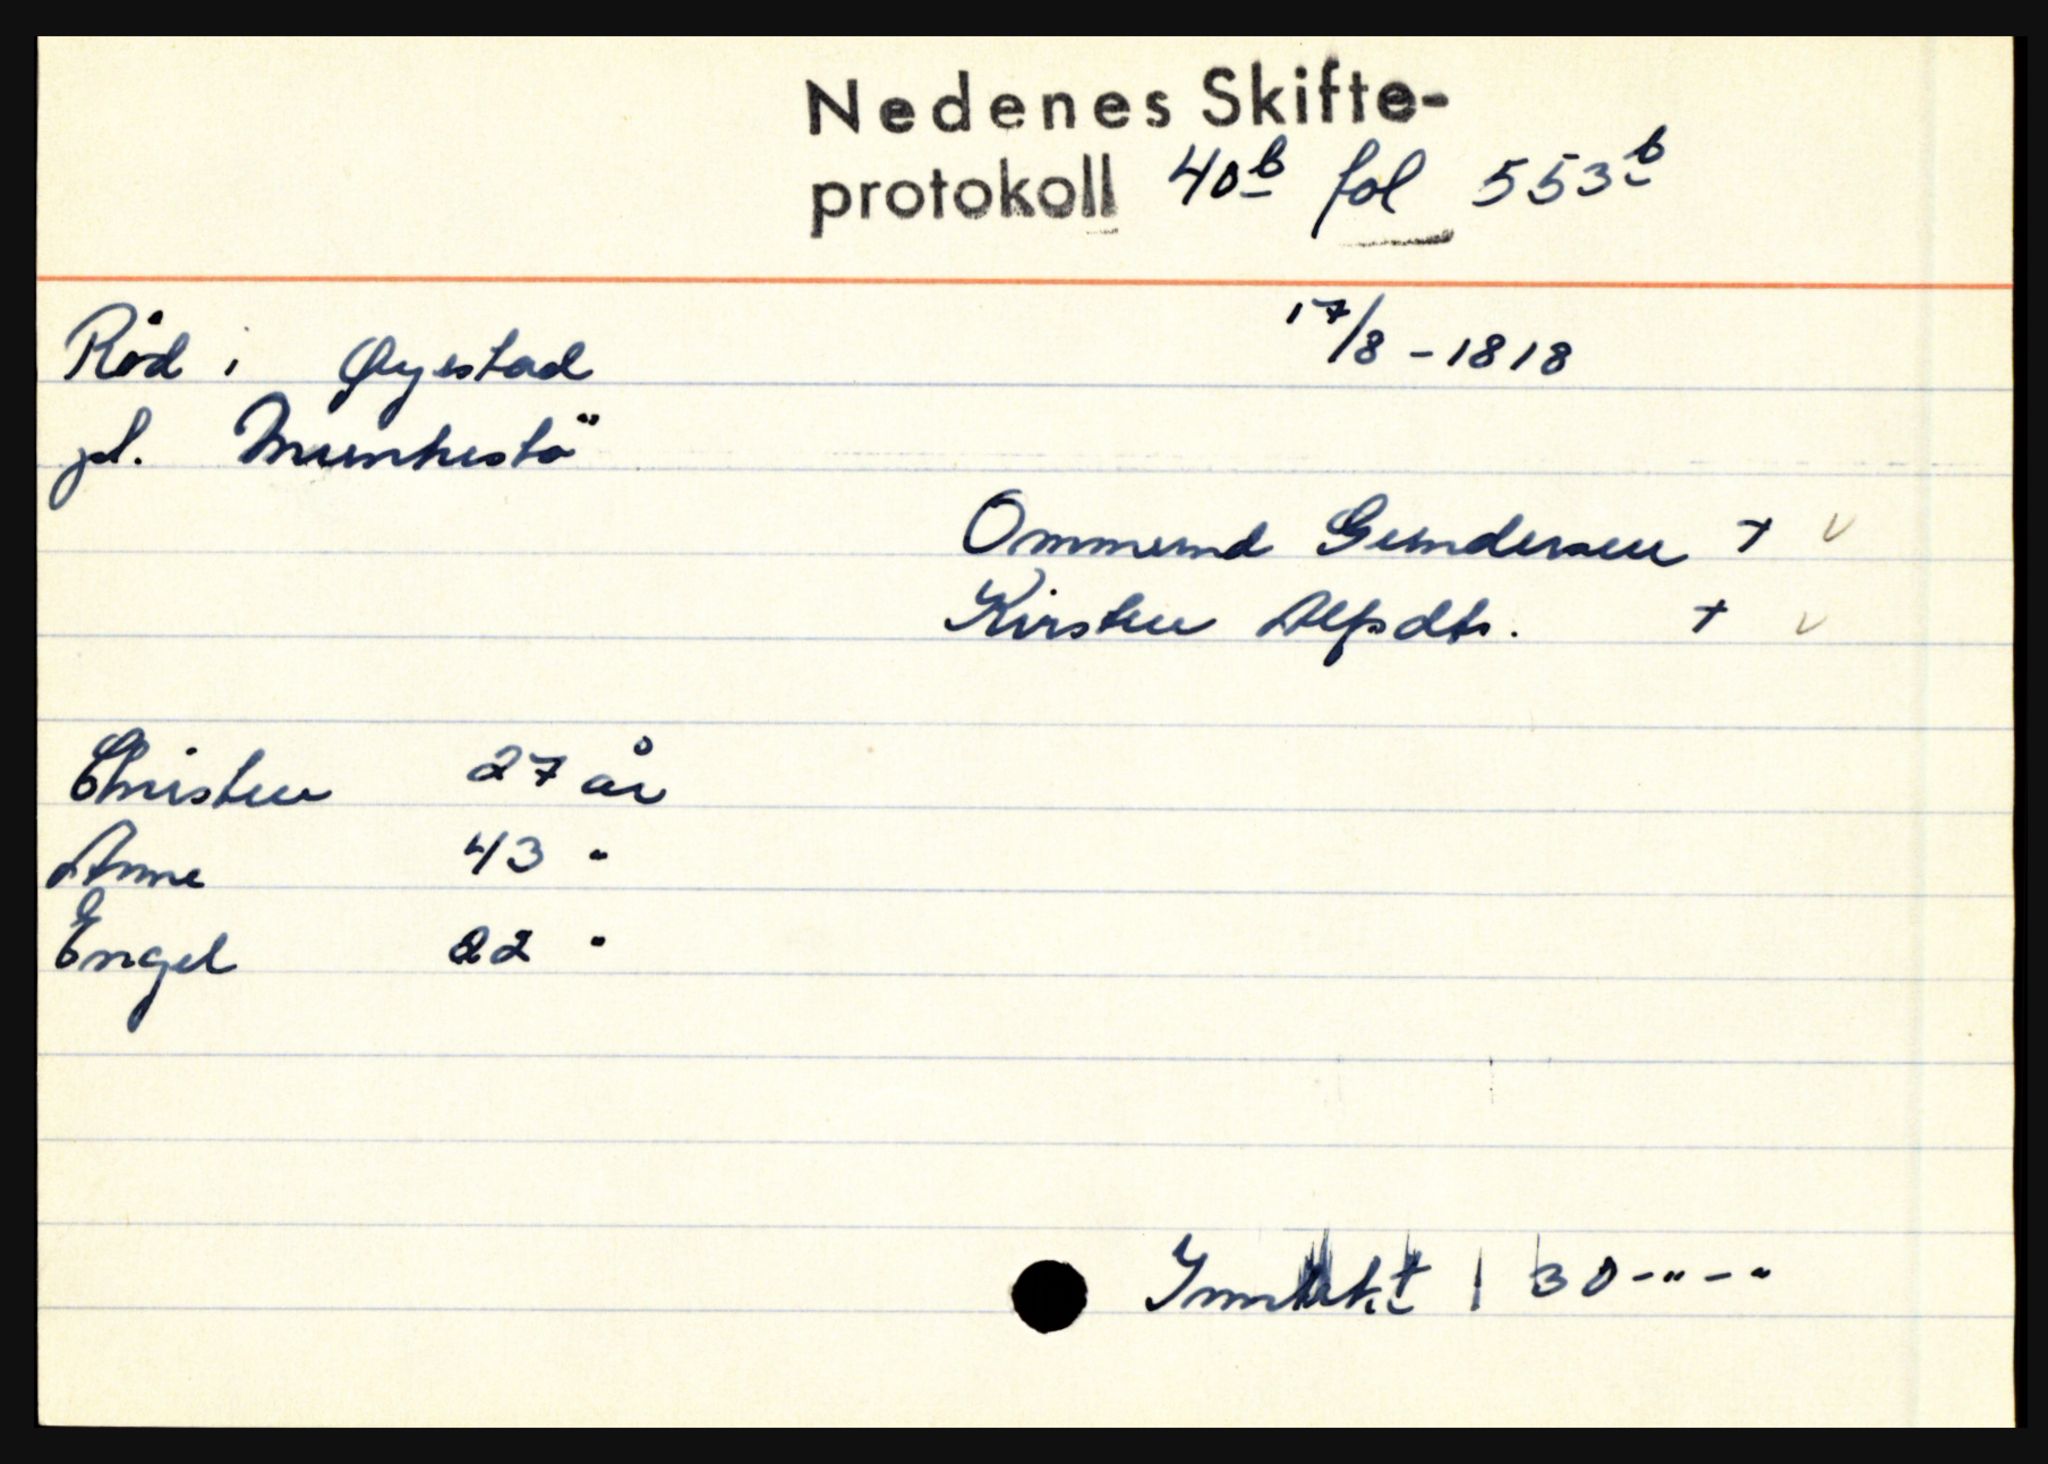 Nedenes Skifte-
protokoll 40b fol 553b
Röd i Øyestad 17/8 - 1818
pl. Munkestö
Ommund Gundersen + v
Kirsten Alfsdts. + v
Christen 27 år
Anne 43 "
Engel 22 "
Inntekt 130-"-"